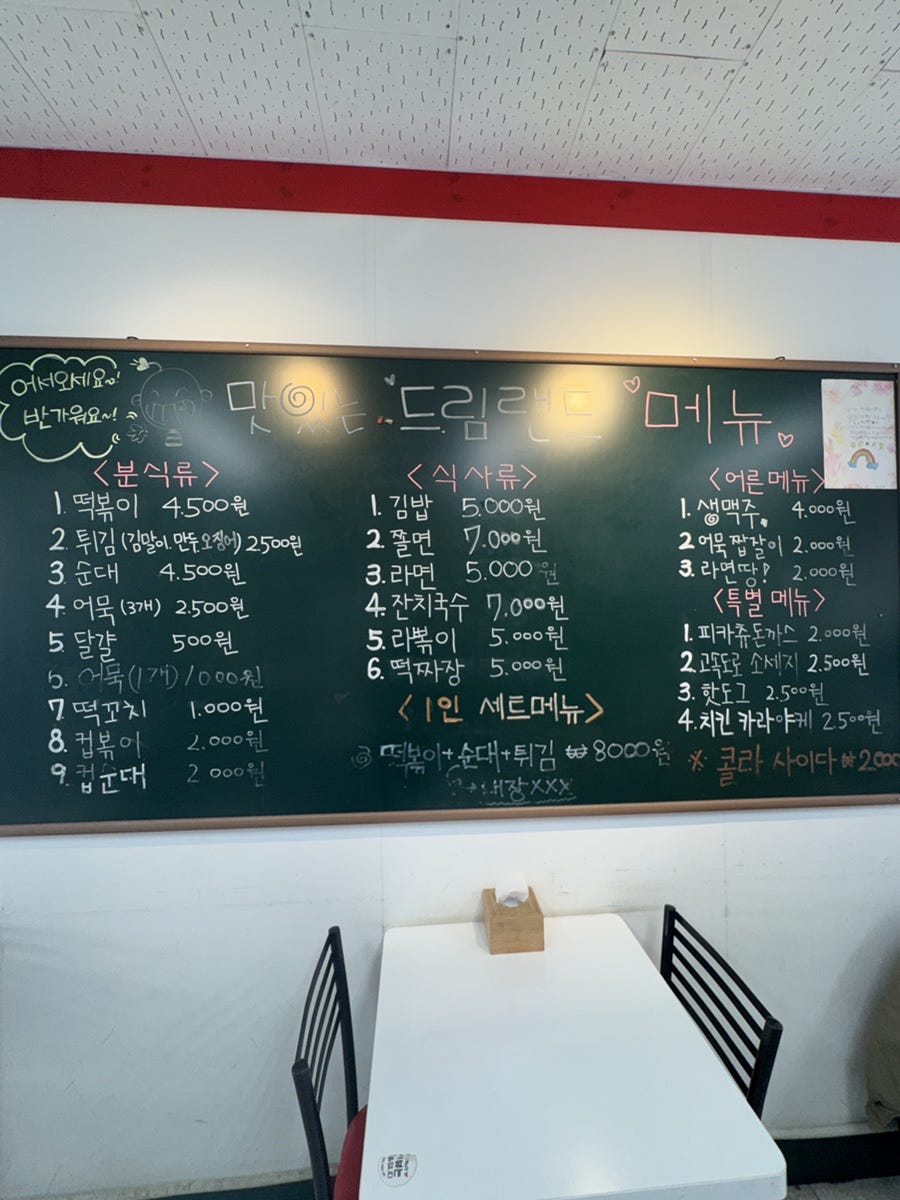 어서와세요~!
반가워요~!
맛있는 드림랜드 메뉴
<분식류>
1. 떡볶이 4.500원
2. 튀김 (김말이. 만두. 오징어) 2.500원
3. 순대 4.500원
4. 어묵 (3개) 2.500원
5. 달걀 500원
6. 어묵 (1개) 1000원
7. 떡꼬치 1.000원
8. 컵볶이 2.000원
9. 컵순대 2000원
<식사류>
1. 김밥 5.000원
2. 쫄면 7.000원
3. 라면 5.000원
4. 잔치국수 7.000원
5. 라볶이 5.000원
6. 떡짜장 5.000원
<1인 세트메뉴>
떡볶이+순대+튀김 ₩8000원
내장XXX
<어른메뉴>
1. 생맥주 4.000원
2 어묵짭잘이 2.000원
3. 라면땅! 2.000원
<특별메뉴>
1. 피카츄돈까스 2.000원
2. 고속도로 소세지 2.500원
3. 핫도그 2.500원
4. 치킨 카라야케 2.500원
※ 콜라 사이다 ₩2000